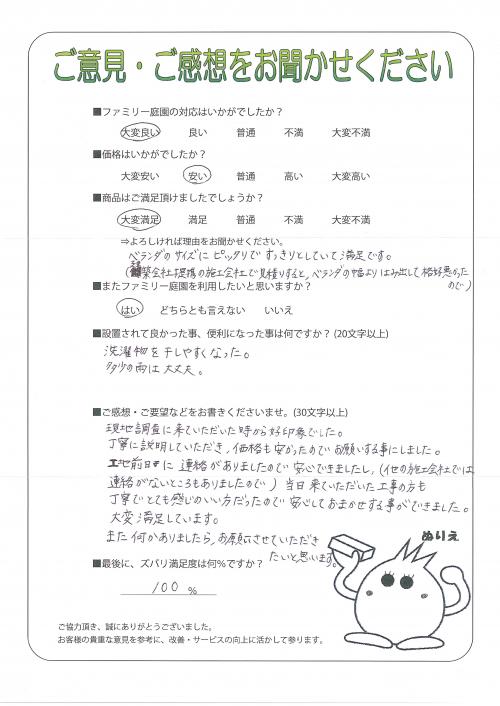 ご意見・ご感想をお聞かせください
■ファミリー庭園の対応はいかがでしたか？
大変良い 良い 普通 不満 大変不満
■価格はいかがでしたか？
大変安い 安い 普通 高い 大変高い
■商品はご満足頂けましたでしょうか？
大変満足 満足 普通 不満 大変不満
⇒よろしければ理由をお聞かせください。
ベランダのサイズにピッタリですっきりとしていて満足です。
(建築会社提携の施工会社で見積りすると、ベランダの幅よりはみ出して格好悪かった
ので)
■またファミリー庭園を利用したいと思いますか？
はい どちらとも言えない いいえ
■設置されて良かった事、便利になった事は何ですか？(20文字以上)
洗濯物を干しやすくなった。
多少の雨は大丈夫。
■ご感想・ご要望などをお書きくださいませ。(30文字以上)
現地調査に来ていただいた時から好印象でした。
丁寧に説明していただき、価格も安かったのでお願いする事にしました。
前日に連絡がありましたので安心できましたし、(他の施工会社では
連絡がないところもありましたので)当日来ていただいた工事の方も
丁寧でとても感じのいい方だったので安心しておまかせする事ができました。
大変満足しています。
また何かありましたら、お願いさせていただき
たいと思います。
ぬりえ
■最後に、ズバリ満足度は何%ですか？
100 %
ご協力頂き、誠にありがとうございました。
お客様の貴重な意見を参考に、改善・サービスの向上に活かして参ります。